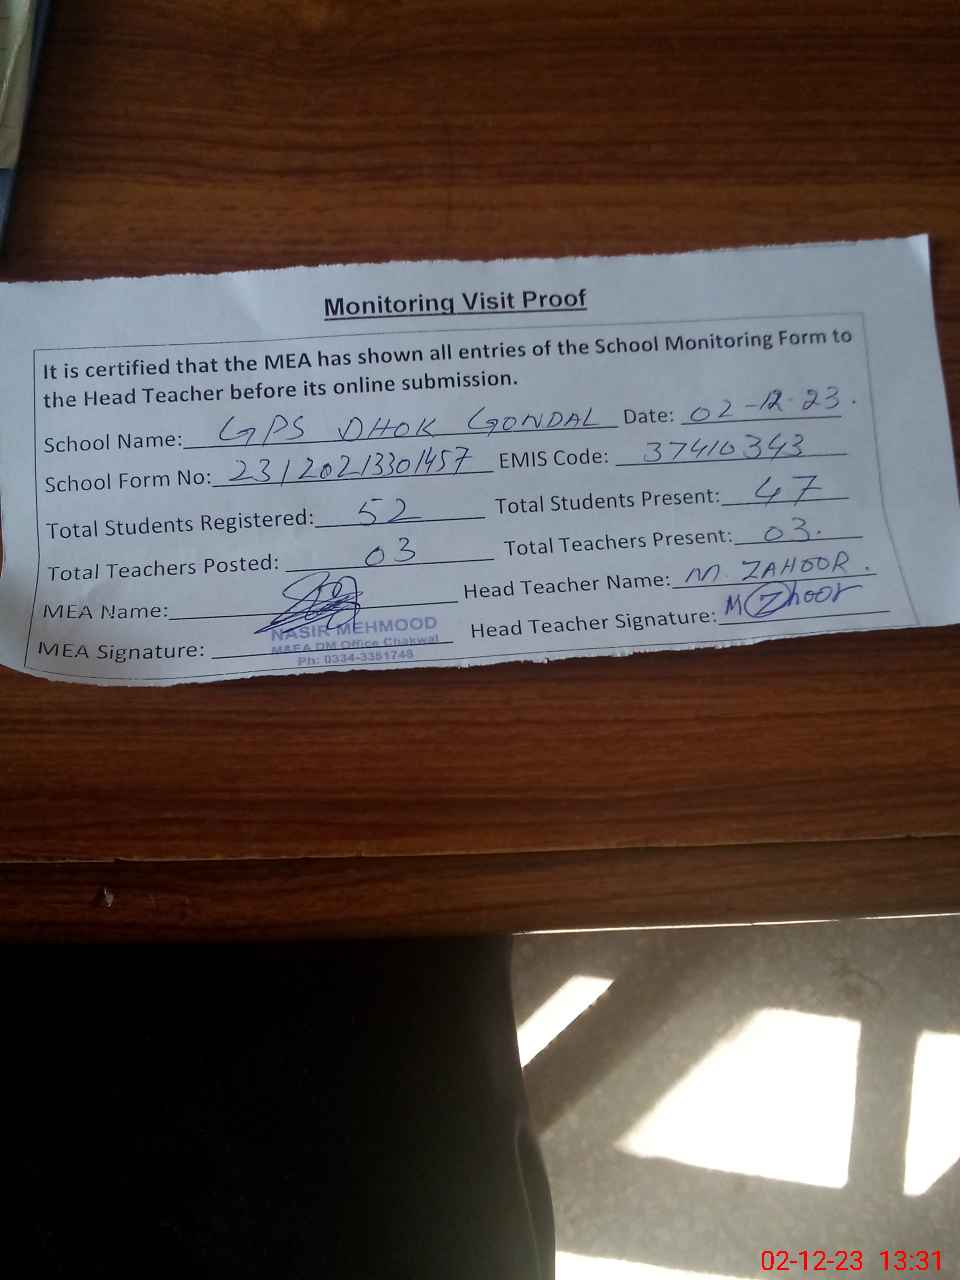 Monitoring Visit Proof
It is certified that the MEA has shown all entries of the School Monitoring Form to
the Head Teacher before its online submission.
School Name: GPS DHOK GONDAL Date: 02-12-23.
School Form No: 23120213301457 EMIS Code: 37410343
Total Students Registered: 52 Total Students Present: 47
Total Teachers Posted: 03 Total Teachers Present: 03.
MEA Name: Head Teacher Name: M. ZAHOOR.
NASIR MEHMOOD
MEA Signature: Head Teacher Signature: M Zhoor
M&EA DM Office Chakwal
Ph: 0334-3361748
02-12-23 13:31